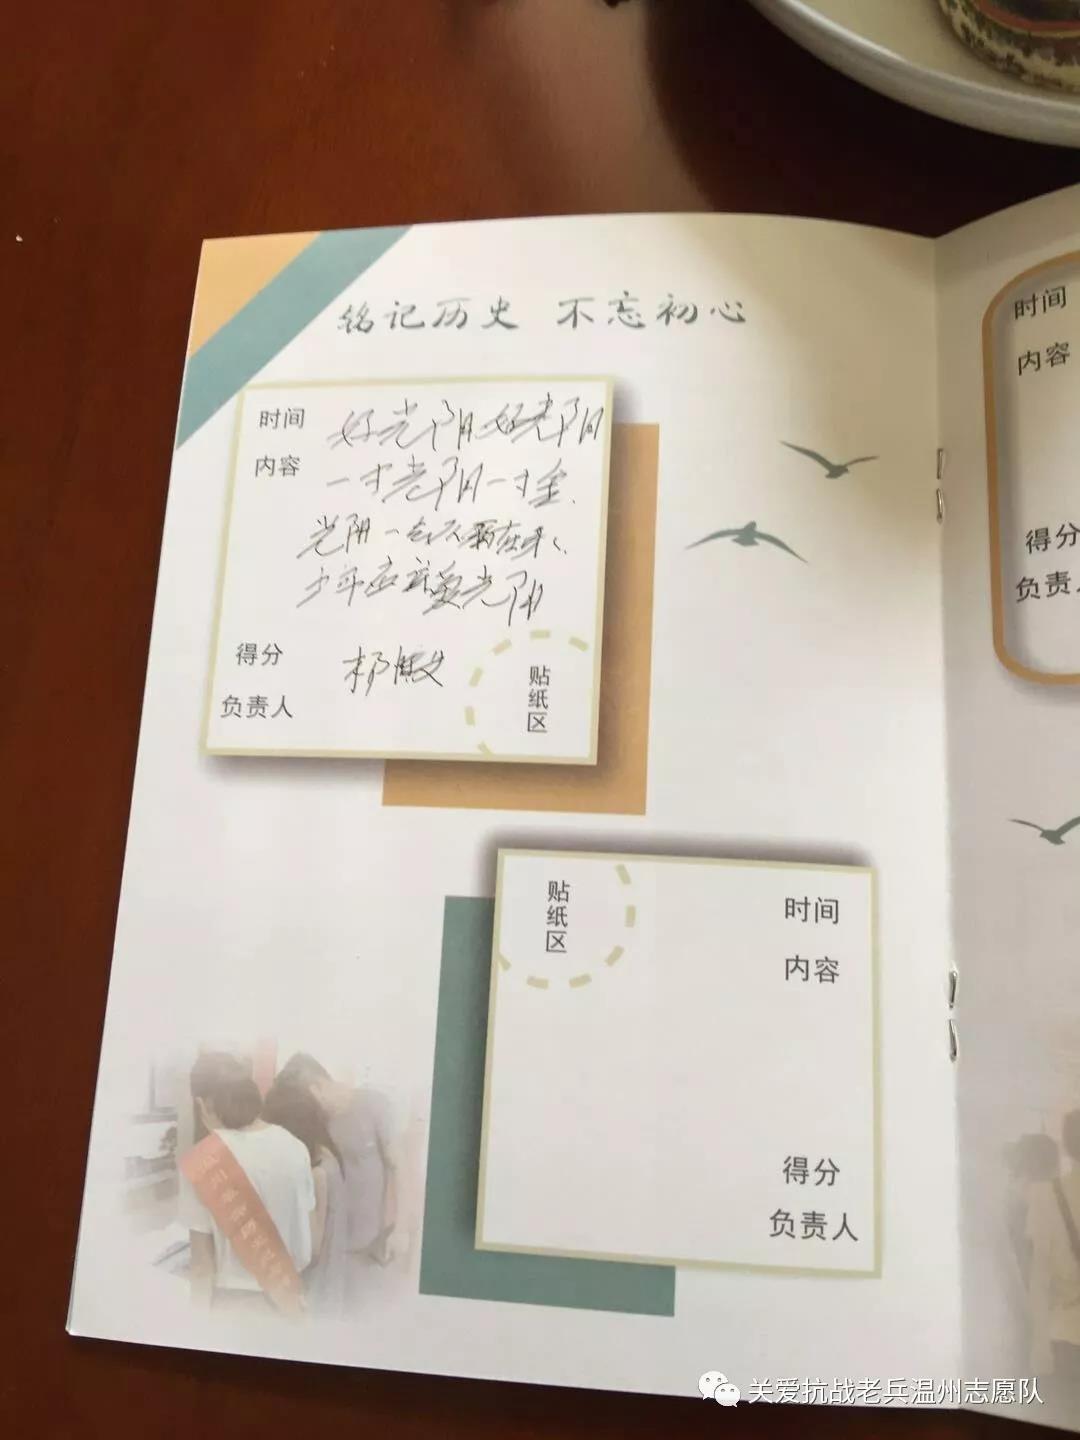 铭记历史 不忘初心
时间
内容
好光阴好光阴
一寸光阴一寸金、
光阴一去不再来、
少年应该爱光阴
得分
负责人
贴纸区
贴纸区
时间
内容
得分
负责人
时间
内容
得分
负责
关爱抗战老兵温州志愿队